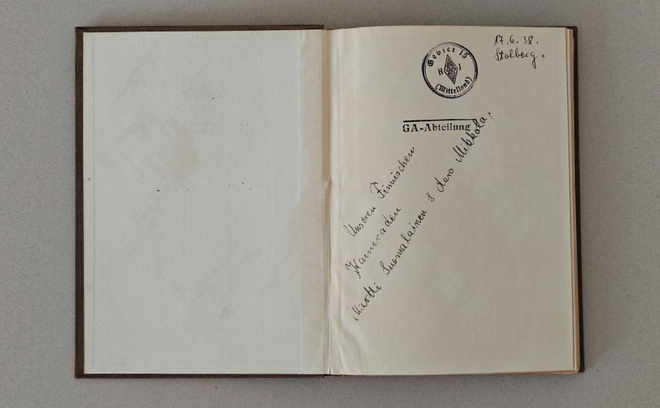 Gebiet 15
H J
(Mittelland)
17.6.38.
Stolberg.
GA-Abteilung
Unseren Finnischen
Kameraden
Martti Suomalainen & Aaro Mikkola.